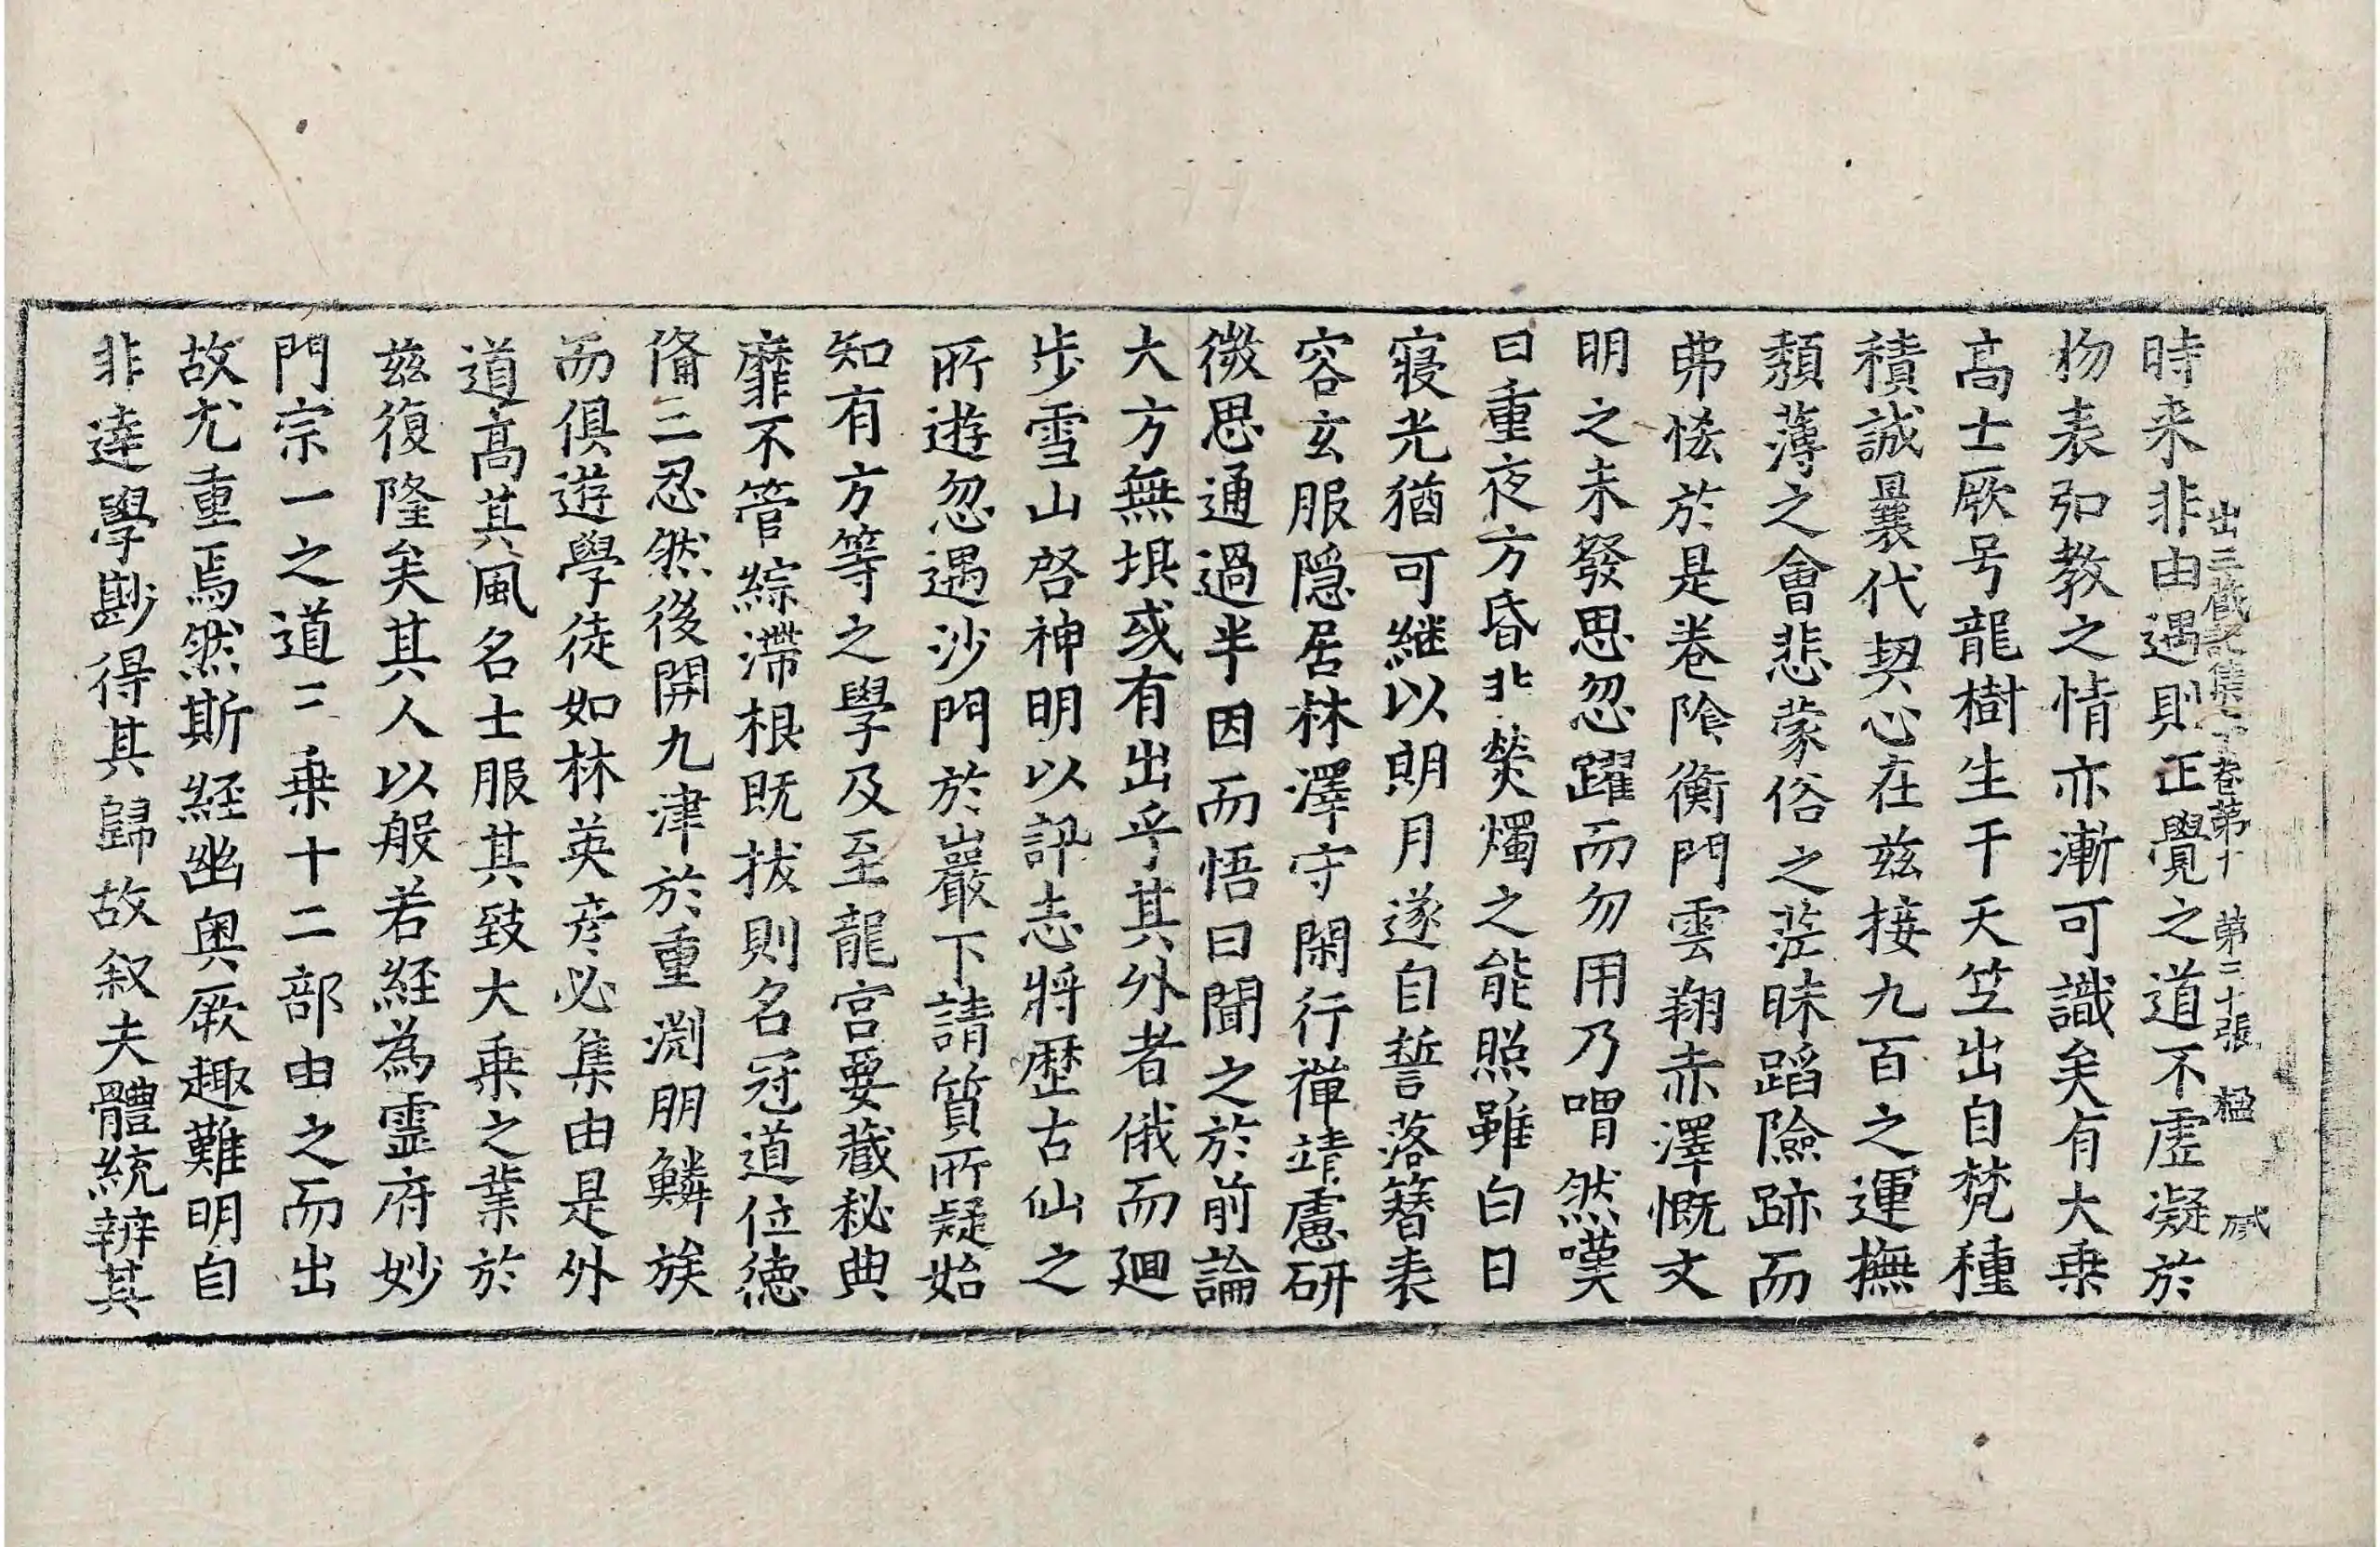 出三藏記集下卷第十 第二十張 楹
時来非由遇則正覺之道不虗凝於
物表弘教之情亦漸可識矣有大乗
髙士厥号龍樹生于天竺出自梵種
積誠曩代契心在兹接九百之運撫
頹薄之會悲蒙俗之茫昧蹈險跡而
弗悋於是卷隂衡門雲翔赤澤慨文
明之未發思忽躍而勿用乃喟然嘆
曰重夜方昏非熒燭之能照雖白日
寢光猶可継以朗月遂自誓落簪表
容玄服隠居林澤守閑行禪靖慮研
微思通過半因而悟曰聞之於前論
大方無垠或有出乎其外者俄而廻
步雪山啓神明以訴志將歷古仙之
所遊忽遇沙門於巖下請質所疑始
知有方等之學及至龍宮要藏秘典
靡不管綜滯根既拔則名冠道位德
俻三忍然後開九津於重渊朋鱗族
而俱遊學徒如林英彦必集由是外
道髙其風名士服其致大乗之業於
兹復隆矣其人以般若経為霊府妙
門宗一之道三乗十二部由之而出
故尤重焉然斯経幽奥厥趣難明自
非達學尠得其歸故叙夫體統辨其